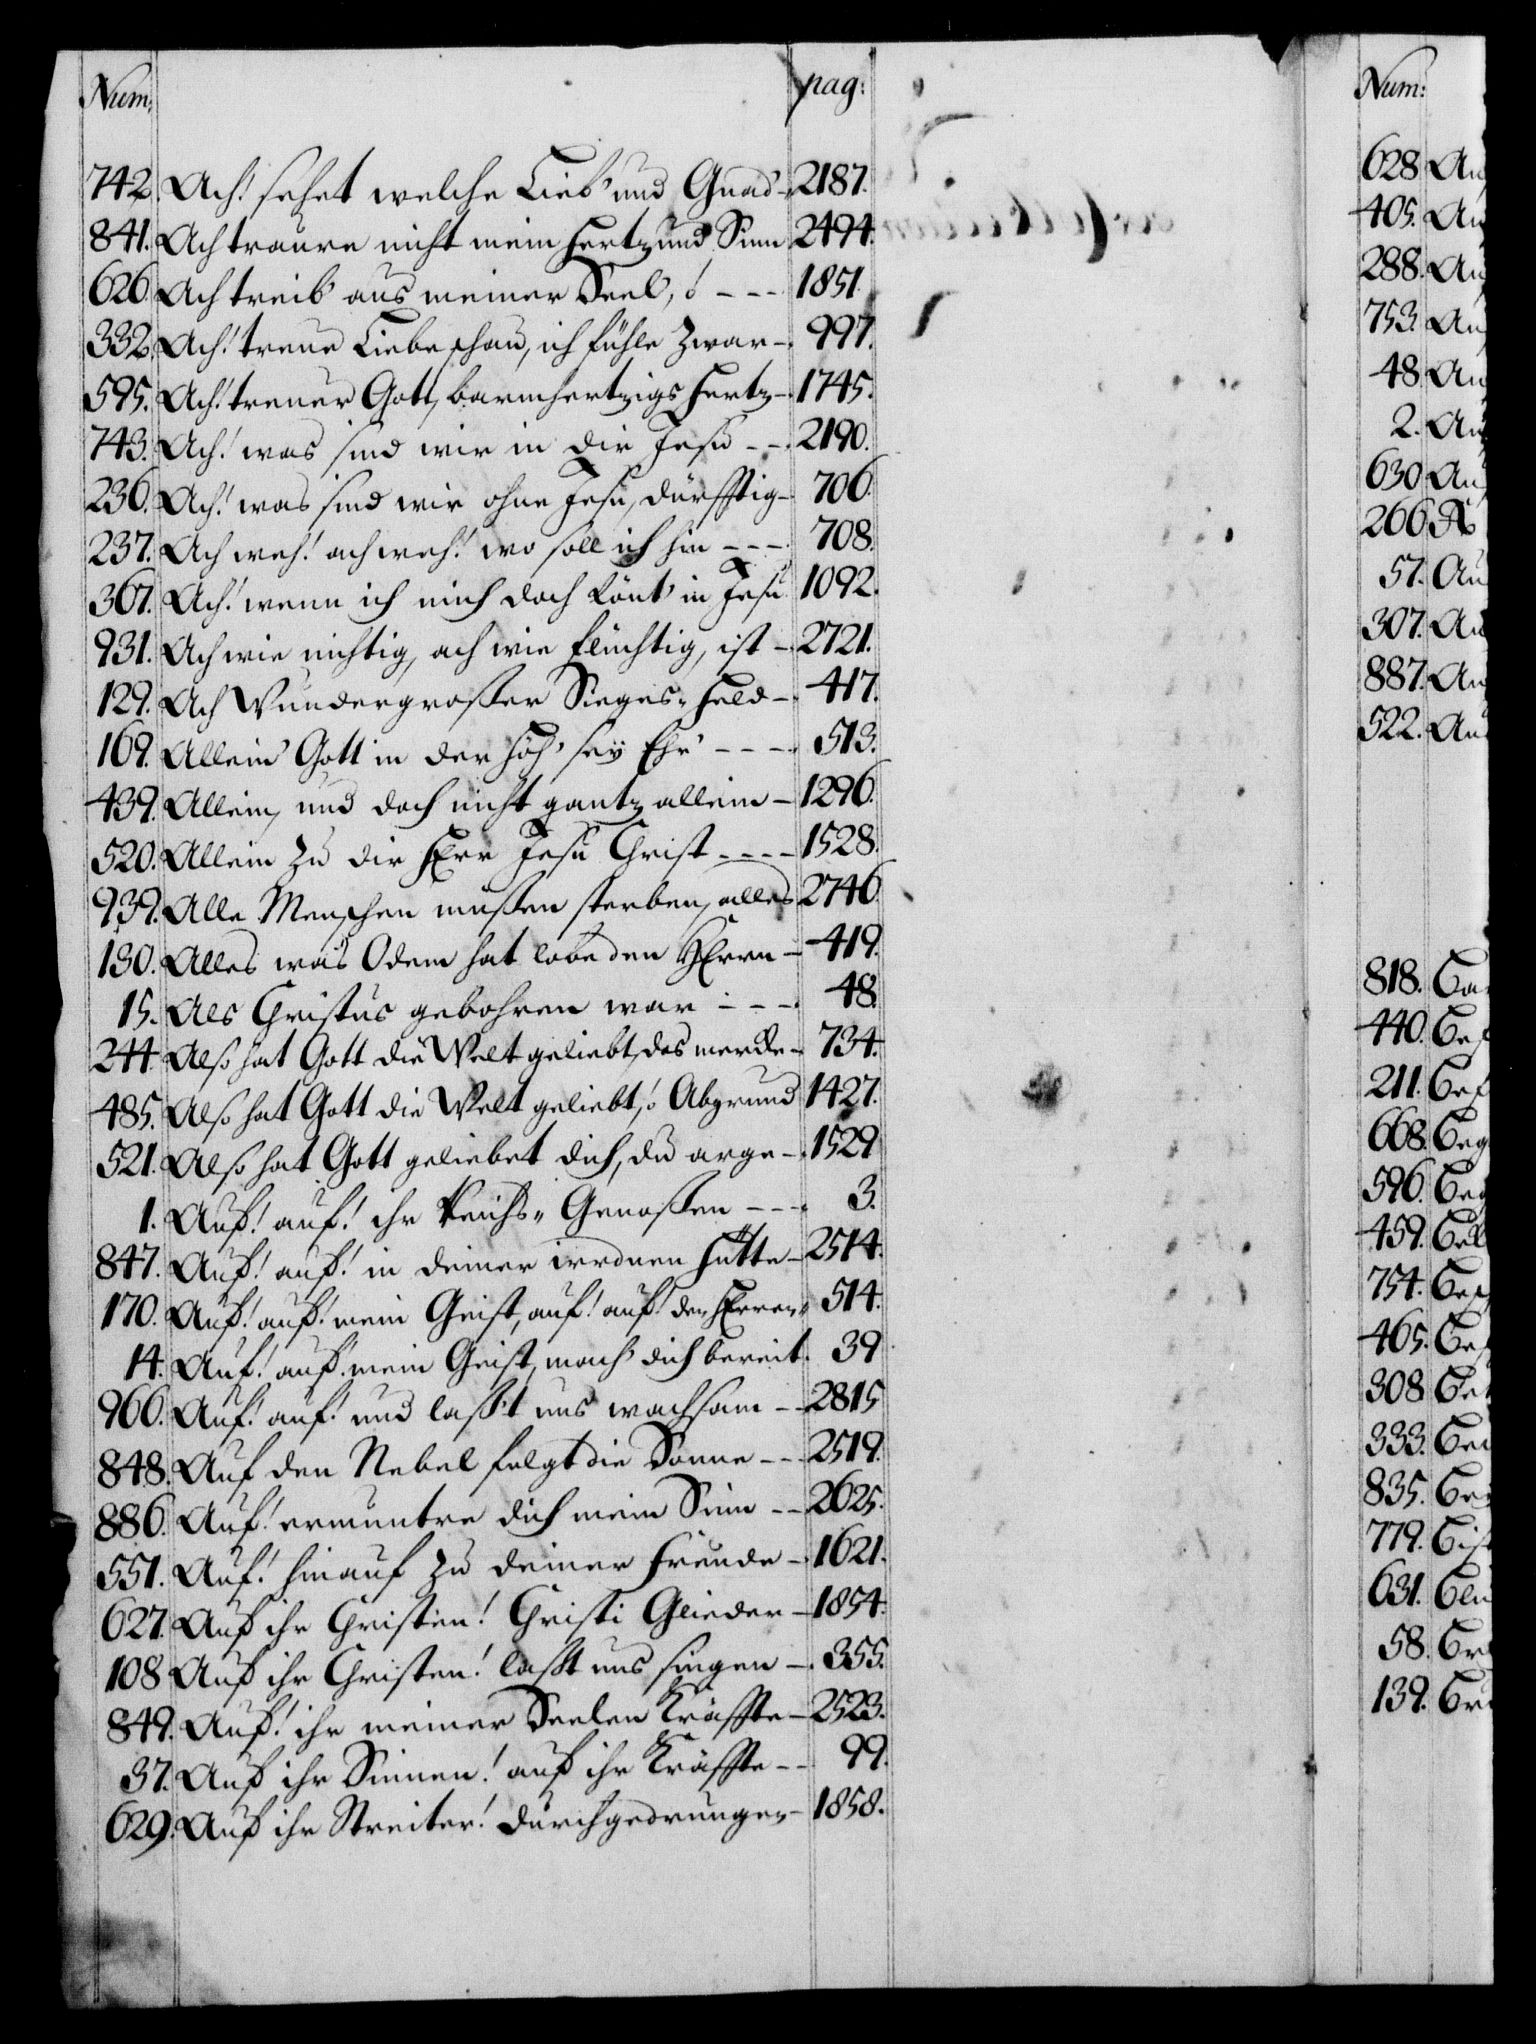 Num: pag:
742. Ach! sehet welche Lieb' und Gnad - 2187.
841. Ach traure nicht mein Hertz und Sinn 2494.
626. Ach treib aus meiner Seel, ô - - - 1851.
332. Ach! treue Liebe schau, ich fühle zwar - 997.
595. Ach! treuer Gott, barmhertzigs Hertz - 1745.
743. Ach! was sind wir in dir Jesu - - 2190.
236. Ach! was sind wir ohne Jesu, dürfftig - 706.
237. Ach weh! ach weh! wo soll ich hin - - - 708.
367. Ach! wenn ich mich doch könt' in Jesu 1092.
931. Ach wie nichtig, ach wie flüchtig, ist - 2721.
129. Ach Wundergroßer Sieges-Held - 417.
169. Allein Gott in der Höh' seÿ Ehr' - - - - 513.
439. Allein, und doch nicht gantz allein - 1296.
520. Allein zu dir HErr Jesu Christ - - - - 1528.
939. Alle Menschen müßen sterben, alles 2746.
130. Alles was Odem hat lobe den HErrn - 419.
15. Als Christus gebohren war - - - 48.
244. Also hat Gott die Welt geliebt, das mercke - 734.
485. Also hat Gott die Welt geliebt, ô Abgrund 1427.
521. Also hat Gott geliebet dich, du arge - 1529
1. Auf! auf! ihr Reichs-Genoßen - - - 3.
847. Auf! auf! in deiner irrdnen Hütte - 2514.
170. Auf! auf! mein Geist, auf! auf! den HErren 514.
14. Auf! auf! mein Geist, mach' dich bereit. 39
966. Auf! auf! und laßt uns wachsam - - 2815
848. Auf den Nebel folgt die Sonne - - 2519.
886. Auf! ermuntre dich mein Sinn - - 2625.
551. Auf! hinauf zu deiner Freude - 1621.
627. Auf ihr Christen! Christi Glieder - 1854.
108 Auf ihr Christen! laßt uns singen - 355.
849. Auf! ihr meiner Seelen Kräffte - 2523.
37. Auf ihr Sinnen! auf ihr Kräffte - - 99.
629. Auf ihr Streiter! durchgedrungen - 1858.
Num:
628
405.
288.
753.
48
2.
630
266
57.
307.
887.
522.
818.
440.
211.
668.
596.
459.
754.
465.
308
333.
835.
779.
631.
58.
139.